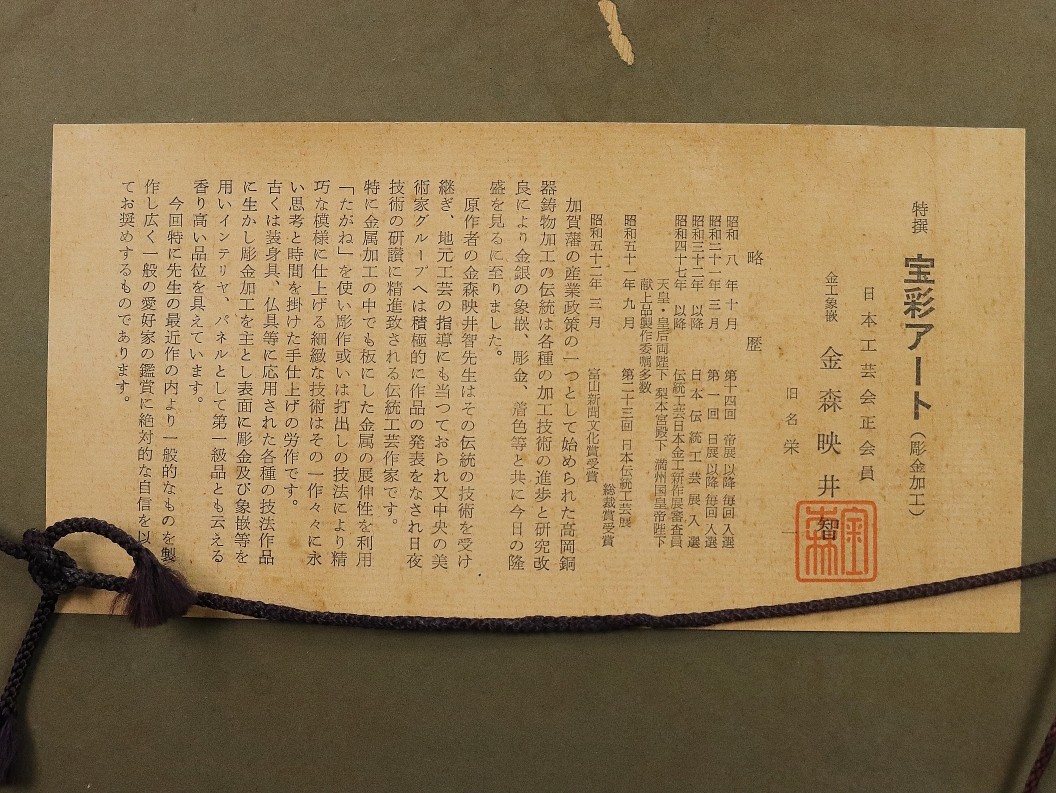 特撰 宝彩アート（彫金加工）
日本工芸会正会員
金工象嵌 金森映井智
旧名 栄一
略歴
昭和八年十月 第十四回 帝展以降毎回入選
昭和二十一年三月 第一回 日展以降毎回入選
昭和三十二年以降 日本伝統工芸展入選
昭和四十七年以降 伝統工芸日本金工新作展審査員
天皇・皇后両陛下 梨本宮殿下 満州国皇帝陛下
献上品製作委嘱多数
昭和五十一年九月 第二十三回 日本伝統工芸展
総裁賞受賞
昭和五十二年三月 富山新聞文化賞受賞
加賀藩の産業政策の一つとして始められた高岡銅
器鋳物加工の伝統は各種の加工技術の進歩と研究改
良により金銀の象嵌、彫金、着色等と共に今日の隆
盛を見るに至りました。
原作者の金森映井智先生はその伝統の技術を受け
継ぎ、地元工芸の指導にも当つておられ又中央の美
術家グループへは積極的に作品の発表をなされ日夜
技術の研讃に精進致される伝統工芸作家です。
特に金属加工の中でも板にした金属の展伸性を利用
「たがね」を使い彫作或いは打出しの技法により精
巧な模様に仕上げる細緻な技術はその一作々々に永
い思考と時間を掛けた手仕上げの労作です。
古くは装身具、仏具等に応用された各種の技法作品
に生かし彫金加工を主とし表面に彫金及び象嵌等を
用いインテリヤ、パネルとして第一級品とも云える
香り高い品位を具えています。
今回特に先生の最近作の内より一般的なものを製
作し広く一般の愛好家の鑑賞に絶対的な自信を以
てお奨めするものであります。
金森